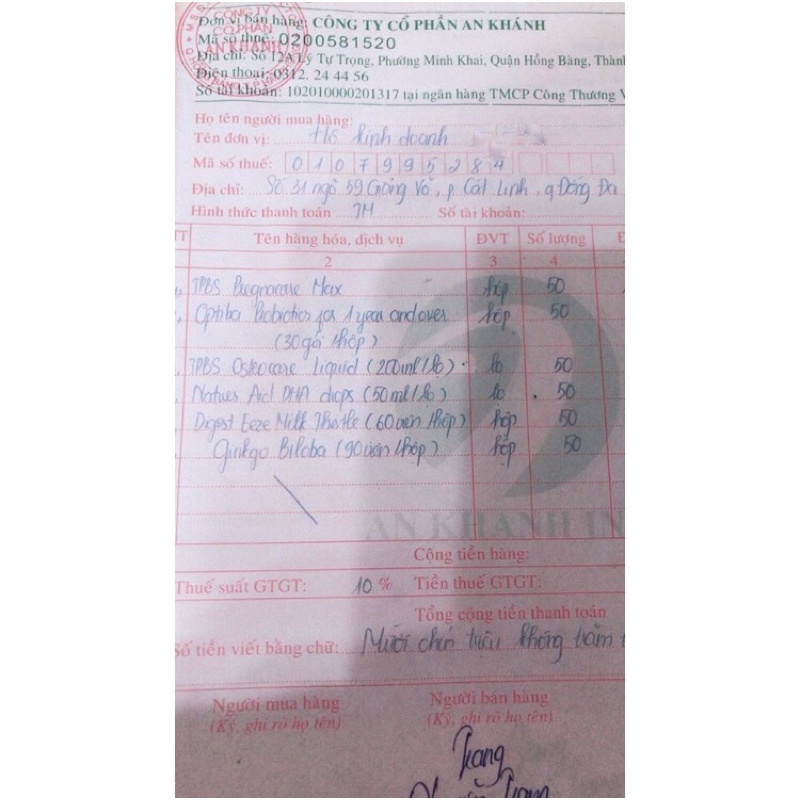 CÔNG TY
CỔ PHẦN
AN KHÁNH
Đơn vị bán hàng: CÔNG TY CỔ PHẦN AN KHÁNH
Mã số thuế: 0200581520
Địa chỉ: Số 12A Lý Tự Trọng, Phường Minh Khai, Quận Hồng Bàng, Thành
Điện thoại: 0312. 24 44 56
Số tài khoản: 102010000201317 tại ngân hàng TMCP Công Thương V
Họ tên người mua hàng:
Tên đơn vị: Hộ kinh doanh
Mã số thuế: 0107995284
Địa chỉ: Số 31 ngõ 59 Giảng Võ, p Cát Linh, q Đống Đa
Hình thức thanh toán TM Số tài khoản:
TT Tên hàng hóa, dịch vụ ĐVT Số lượng Đ
2 3 4
TPBS Pregnacare Max hộp 50
Optiba Probiotics for 1 year and over hộp 50
(30 gói/hộp)
TPBS Osteocare Liquid (200ml/lọ) lọ 50
Natures Aid DHA drops (50ml/lọ) lọ 50
Digest Eeze Milk Thistle (60 viên/hộp) hộp 50
Ginkgo Biloba (90 viên/hộp) hộp 50
AN KHANH IN
Cộng tiền hàng:
Thuế suất GTGT: 10 % Tiền thuế GTGT:
Tổng cộng tiền thanh toán
Số tiền viết bằng chữ: Mười chín triệu không trăm
Người mua hàng Người bán hàng
(Ký, ghi rõ họ tên) (Ký, ghi rõ họ tên)
Trang